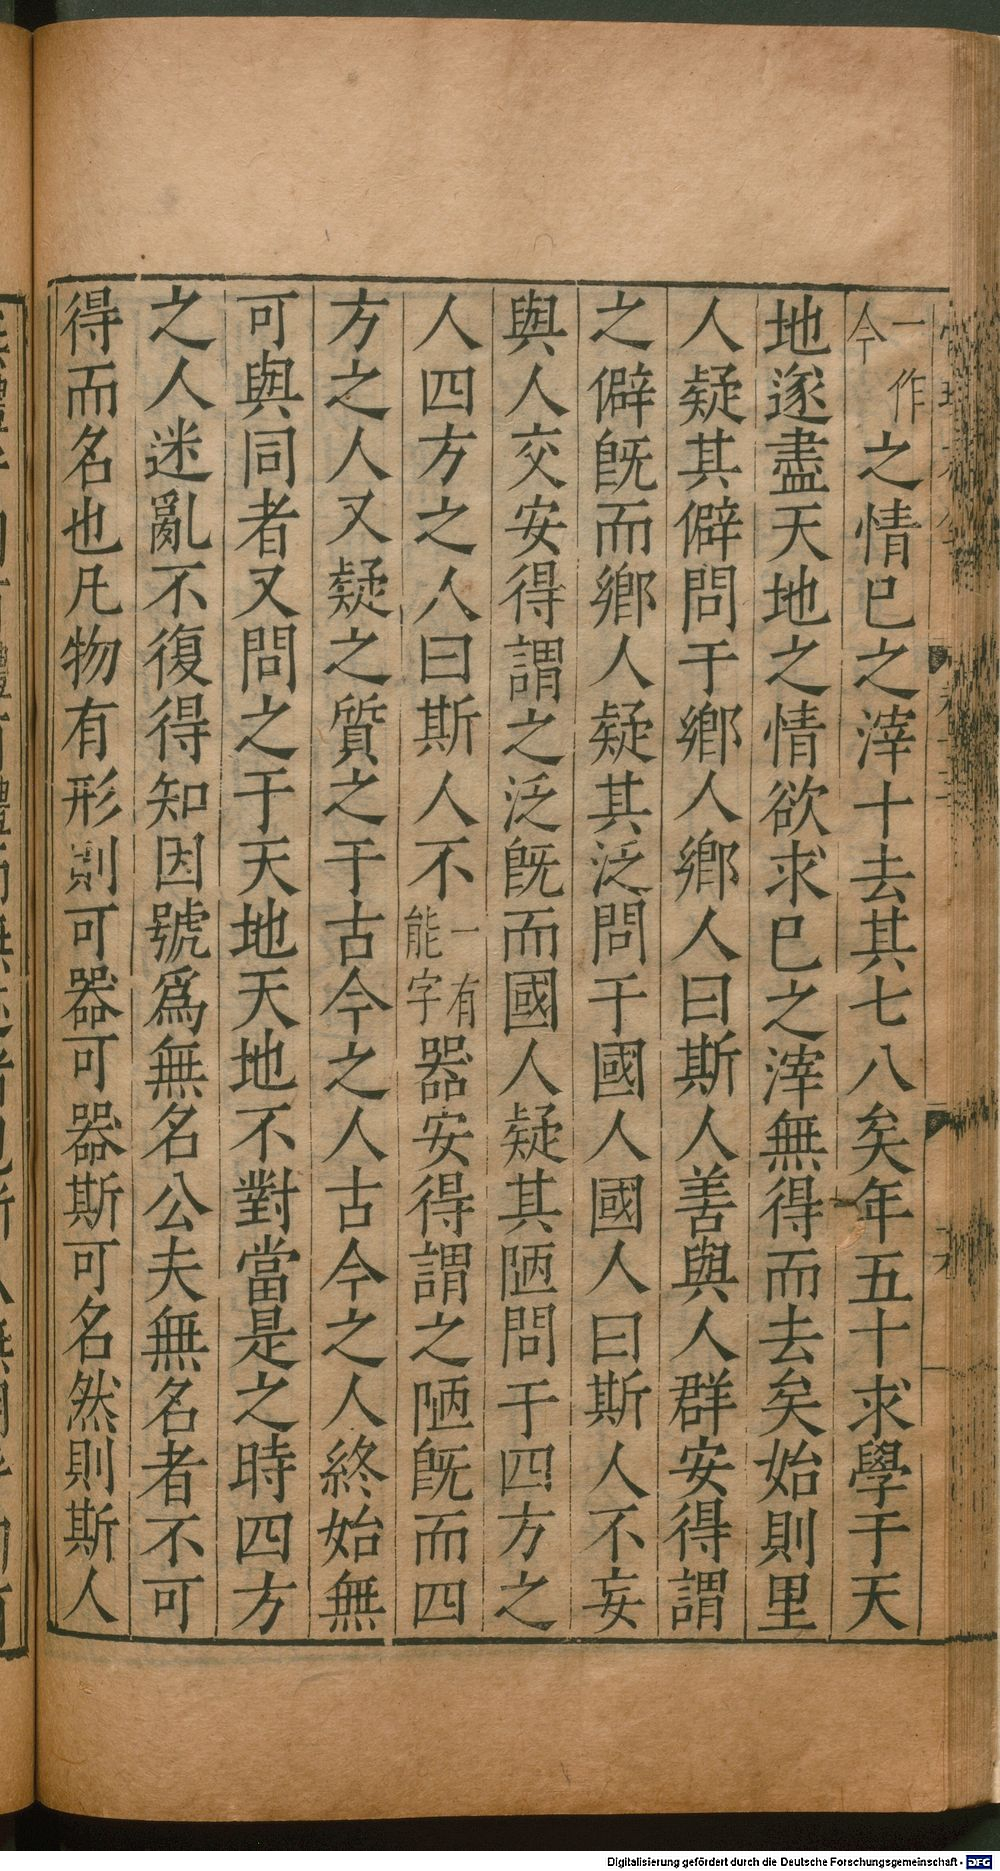 一作今之情已之滓十去其七八矣年五十求學于天
地遂盡天地之情欲求已之滓無得而去矣始則里
人疑其僻問于鄉人鄉人曰斯人善與人群安得謂
之僻旣而鄉人疑其泛問于國人國人曰斯人不妄
與人交安得謂之泛旣而國人疑其陋問于四方之
人四方之人曰斯人不一有能字器安得謂之陋旣而四
方之人又疑之質之于古今之人古今之人終始無
可與同者又問之于天地天地不對當是之時四方
之人迷亂不復得知因號爲無名公夫無名者不可
得而名也凡物有形則可器可器斯可名然則斯人
Digitalisierung gefördert durch die Deutsche Forschungsgemeinschaft - DFG